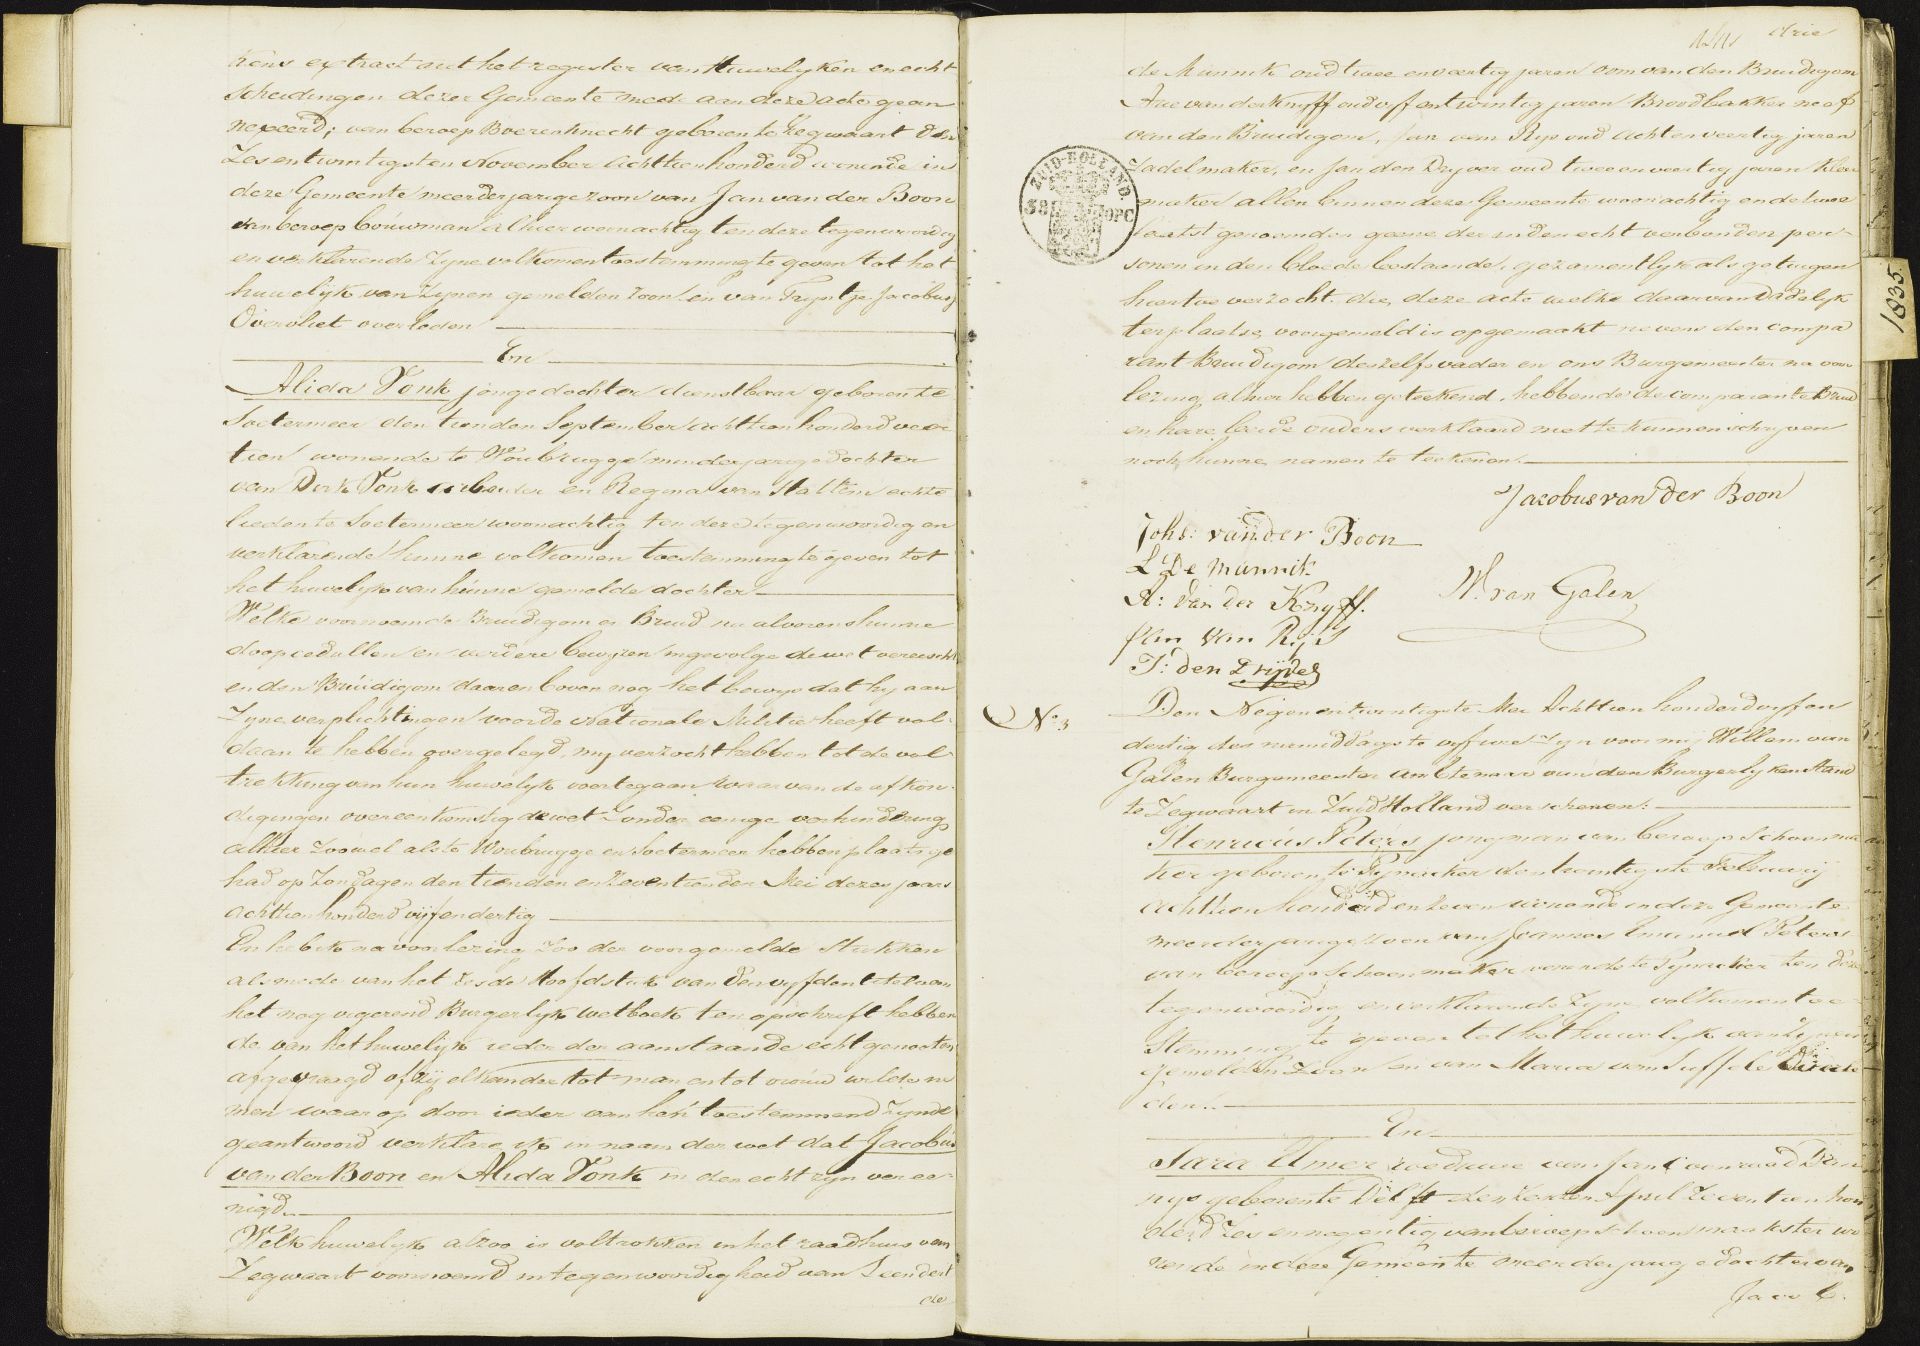 kens extract uit het register van Huwelyken en echt
scheidingen dezer Gemeente mede aan deze acte gean
nexeerd; van beroep Boerenknecht geboren te Zegwaart den
Zesentwintigsten November Achttienhonderd wonende in
deze Gemeente meerderjarige zoon van Jan van der Boon
van beroep bouwman alhier woonachtig ten deze tegenwoordig
en verklarende Zyne volkomen toestemming te geven tot het
huwelijk van Zynen gemelden zoon en van Tryntje Jacobus
Overvliet overleden
En
Alida Vonk jongedochter dienstbaar geboren te
Soetermeer den tienden September Achttienhonderd veer
tien wonende te Woubrugge minderjarige dochter
van Dirk Vonk arbeider en Regina van Hallem echte
lieden te Soetermeer woonachtig ten deze tegenwoordig en
verklarende hunne volkomen toestemming te geven tot
het huwelyk van hunne gemelde dochter
Welke voornoemde Bruidigom en Bruid na alvorens hunne
doopcedullen en verdere bewyzen ingevolge de wet vereischt
en den Bruidigom daarenboven nog het bewys dat hy aan
Zyne verplichtingen voor de Nationale Militie heeft vol-
daan te hebben overgelegd, my verzocht hebben tot de vol
trekking van hun huwelyk voortegaan waarvan de afkon-
digingen overeenkomstig de wet Zonder eenige verhindering
alhier Zoowel als te Woubrugge en Soetermeer hebben plaats ge
had op Zondagen den tienden en Zeventienden Mei dezes jaars
achttienhonderd vijfendertig
En heb ik na voorlezing Zoo der voorgemelde Stukken
als mede van het Zesde Hoofdstuk van den vyfden titel van
het nog vigerend Burgerlyk wetboek ten opschrift hebben
de van het huwelijk ieder der aanstaande echtgenooten
afgevraagd of zij elkander tot man en tot vrouw wilde ne
men waar op door ieder van hen toestemmend Zynde
geantwoord verklare ik in naam der wet dat Jacobus
van der Boon en Alida Vonk in den echt zyn veree-
nigd.
Welk huwelyk alzoo is voltrokken in het raadhuis van
Zegwaart voornoemd in tegenwoordigheid van Leendert
de
Arie
de Munnik oud twee en veertig jaren oom van den Bruidigom
Arie van der Knyff oud vyf entwintig jaren Broodbakker neef
van den Bruidigom, Jan van Rys oud acht en veertig jaren
Zadelmaker, en Jan den Dryver oud twee en veertig jaren kleer
maker allen binnen deze Gemeente woonachtig en de twee
laatst genoemden geene der in den echt verbonden per-
sonen in den bloede bestaande, gezamentlyk als getuigen
hiertoe verzocht, die, deze acte welke daarvan Dadelyk
ter plaatse voorgemeld is opgemaakt nevens den compa
rant Bruidigom deszelfs vader en ons Burgemeester na voor
lezing alhier hebben geteekend, hebbende de comparante Bruid
en hare beide ouders verklaard niet te kunnen schryven
noch hunne namen te teekenen.
Jacobus van der Boon
Johs: van der Boon
L De Munnik
A: van der Knyff.
W. van Galen
Jan van Rijs
J: den Drijver
ZUID-HOLLAND
38 OPC
1835
No 3
Den Negenentwintigste Mei Achttienhonderd vyf en
dertig des namiddags te vyf ure Zyn voor my Willem van
Galen Burgemeester Ambtenaar van den Burgerlyken Stand
te Zegwaart in Zuid Holland verschenen:
Henricus Peters jongman van beroep Schoenma
ker geboren te Pynacker den twintigste Februarij
Achttienhonderd en Zeven wonende in deze Gemeente
meerderjarige zoon van Joannes Emanuel Peters
van beroep Schoenmaker wonende te Pynacker ten deze
tegenwoordig en verklarende Zyne volkomen toe-
stemming te geven tot het huwelyk van Zynen
gemelden Zoon en van Maria van Suffele overle
den.
En
Sara Umer weduwe van Jan Coenraad
geboren te Delft den April Zeventienhon
derd Zes ennegentig van beroep schoenmaakster wo
nende in deze Gemeente meerderjarige dochter van
Jacob